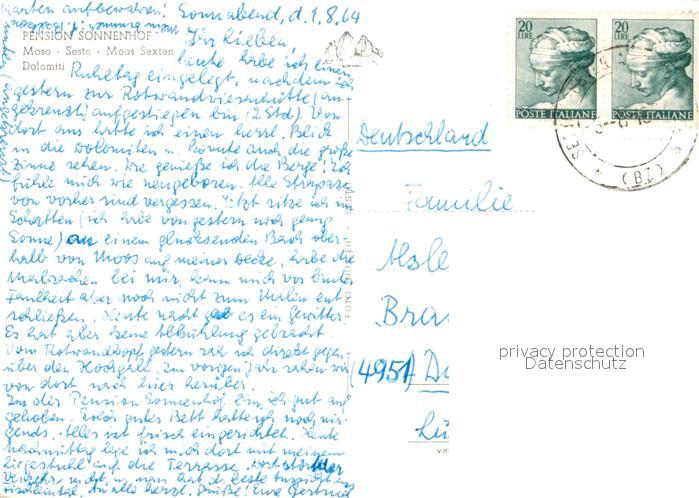 Karten aufbewahren! Sonnabend, d. 1.8.64
PENSION SONNENHOF
Moso - Sesto - Moos Sexten
Dolomiti
Ihr Lieben,
heute habe ich einen
Ruhetag eingelegt, nachdem ich
gestern zur Rotwandwiesenhütte (an-
gekreuzt) aufgestiegen bin (2 Std). Von
dort aus hatte ich einen herrl. Blick
in die Dolomiten u. konnte auch die große
Zinne sehen. Wie genieße ich die Berge! Ich
fühle mich wie neugeboren. Alle Strapazen
von vorher sind vergessen. Jetzt sitze ich im
Schatten (ich habe von gestern noch genug
Sonne) an einem glucksenden Bach ober-
halb von Moos auf meiner Decke, habe die
Malsachen bei mir, kann mich vor lauter
Faulheit aber noch nicht zum Malen ent-
schließen. Heute nacht gab es ein Gewitter.
Es hat aber keine Abkühlung gebracht.
Vom Rotwandkopf gestern sah ich direkt gegen-
über den Hochgall. Im vorigen Jahr sahen wir
von dort nach hier herüber.
In der Pension Sonnenhof bin ich gut auf-
gehoben. Solch gutes Bett hatte ich noch nir-
gends. Alles ist frisch eingerichtet. Heute
nachmittag lege ich mich dort mit meinem
Liegestuhl auf die Terrasse.
Verkehr nicht, u. man hat d. beste Aussicht ins
Fischleintal. An alle herzl. Grüße! Eure Gertrud
20
LIRE
POSTE ITALIANE
20
LIRE
POSTE ITALIANE
(BZ)
Deutschland
Familie
Bra
(4951)
FOTO
privacy protection
Datenschutz